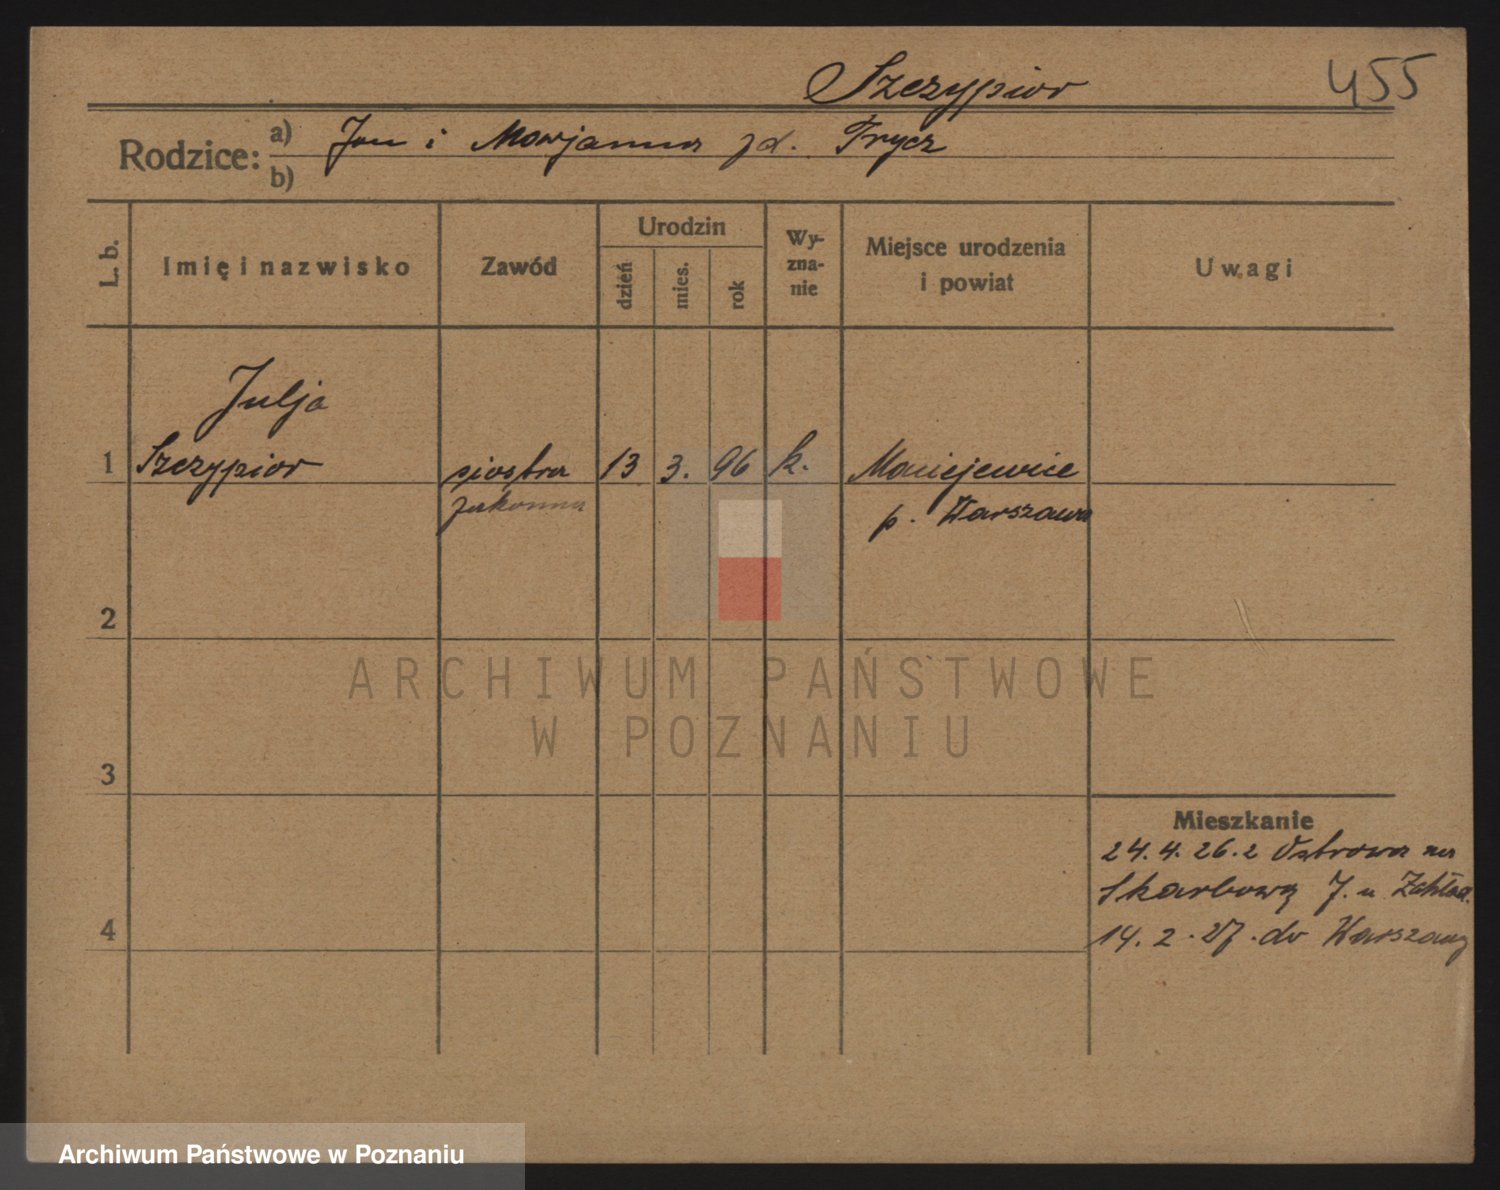 Szczypior 455
Rodzice: a) Jan i Marjanna zd. Frycz
b)
L. b. Imię i nazwisko Zawód Urodzin dzień mies. rok Wy-zna-nie Miejsce urodzenia i powiat Uwagi
Julja
1 Szczypior siostra 13 3. 96 k. Maciejewice
zakonna p. Warszawa
2
3
Mieszkanie
24.4.26. z Ostrowa na
Skarbową
4 14.2.27. do Warszawy
ARCHIWUM PAŃSTWOWE
W POZNANIU
Archiwum Państwowe w Poznaniu